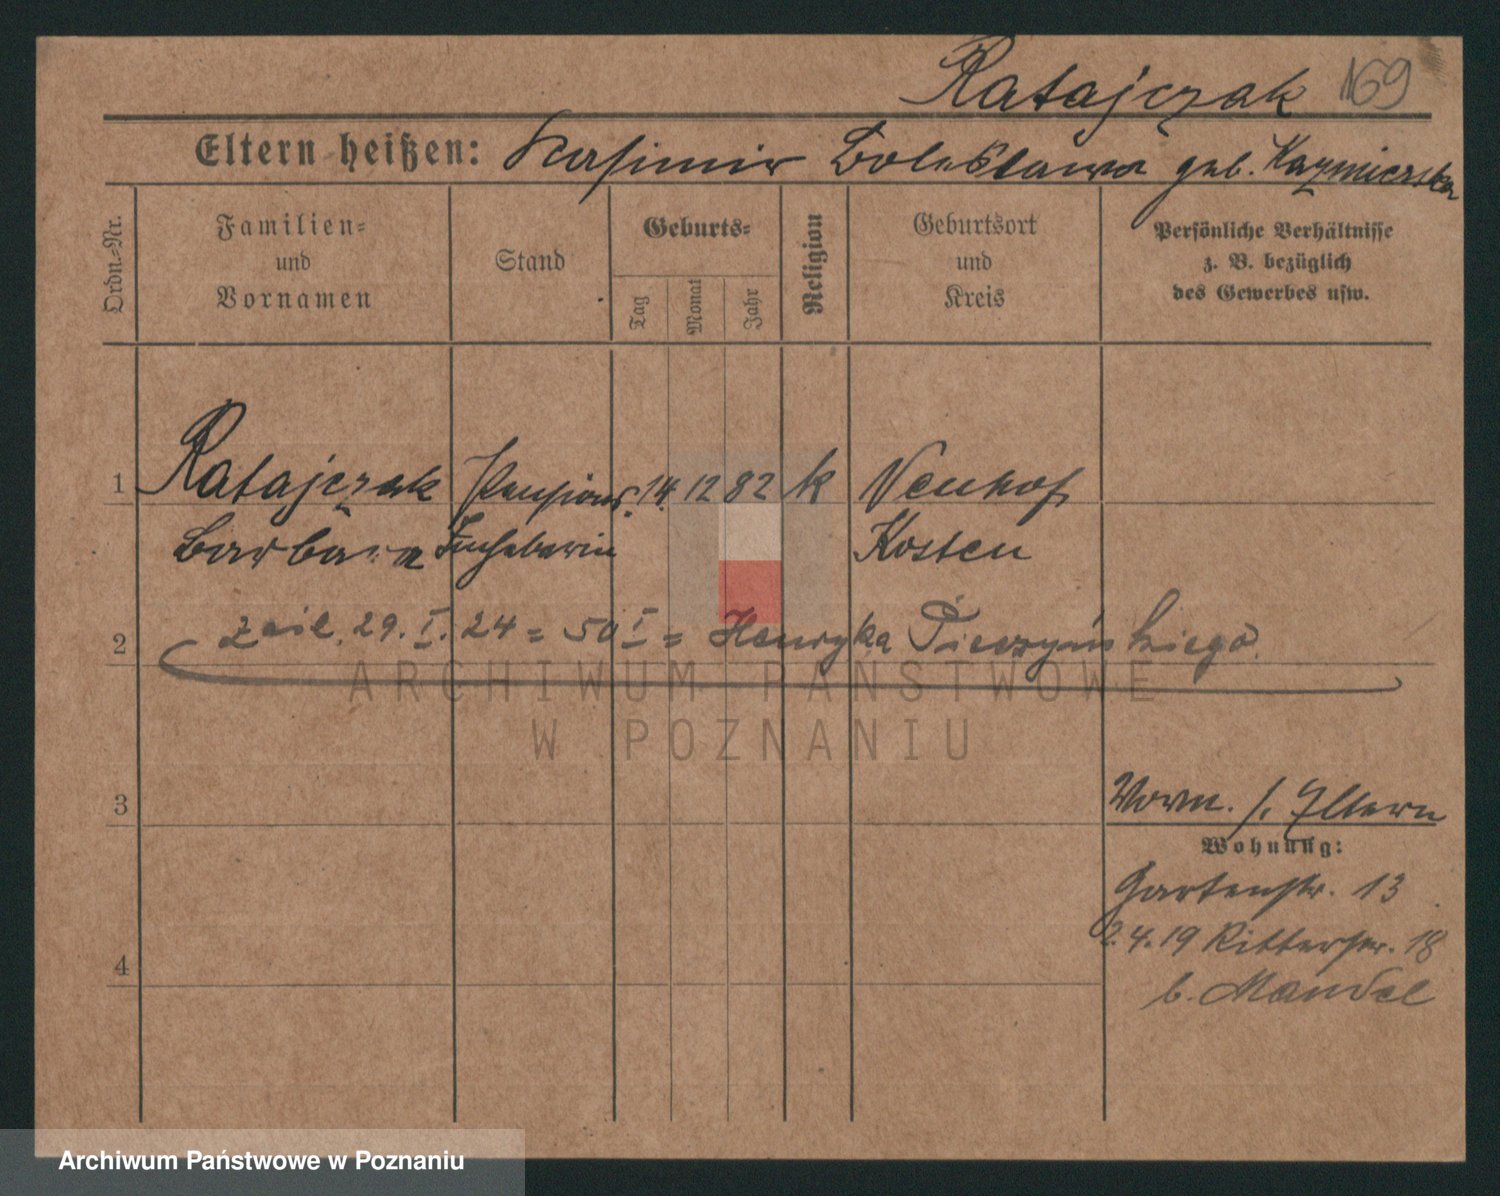 Ratajczak 169
Eltern heißen: Kasimir Boleslawa geb. Kazmierska
Ordn.-Nr.
Familien-
und
Vornamen
Stand
Geburts-
Tag
Monat
Jahr
Religion
Geburtsort
und
Kreis
Persönliche Verhältnisse
z. B. bezüglich
des Gewerbes usw.
1 Ratajczak Pensions- 14. 12 82 k Neuhof
Barbara Inhaberin Kosten
2 29. I. 24 = 50 I = Henryka
3
Vorn. s. Eltern
Wohnung:
Gartenstr. 13
2.4.19 Ritterstr. 18
4
b. Mandel
ARCHIWUM PAŃSTWOWE
W POZNANIU
Archiwum Państwowe w Poznaniu